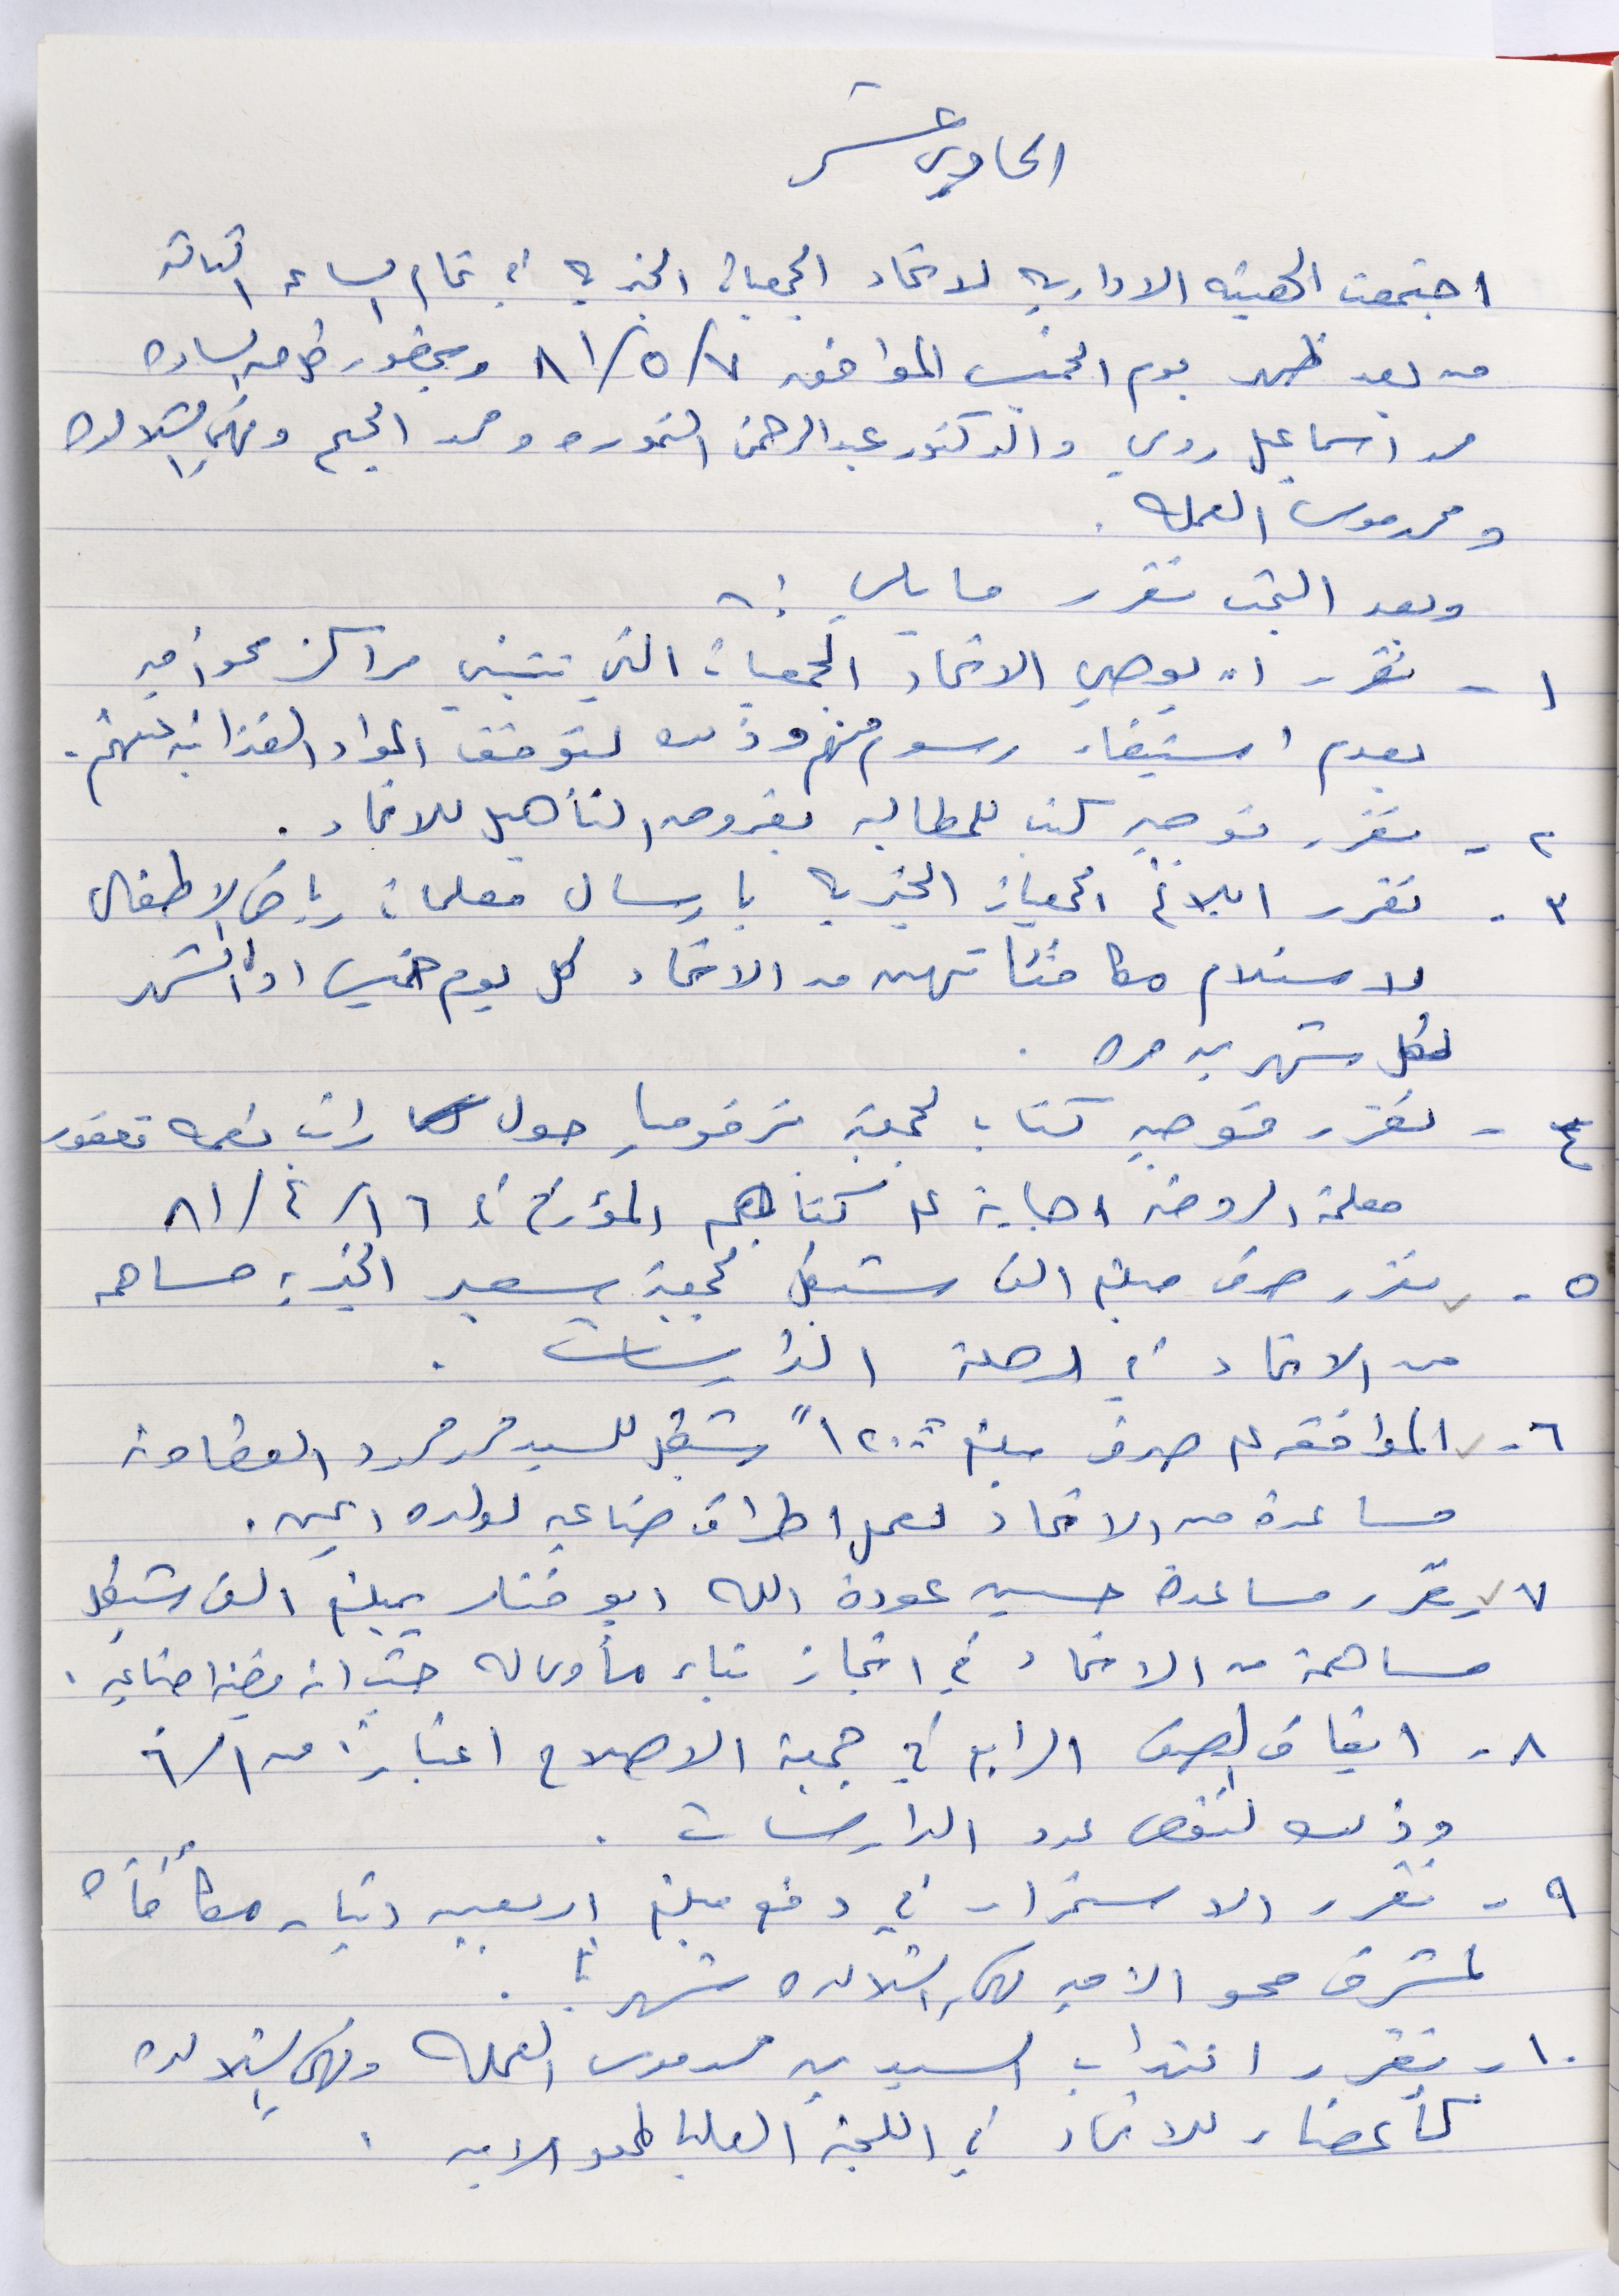 الحادي عشر
اجتمعت الهيئه الاداريه لاتحاد الجمعيات الخيريه في تمام الساعه الثالثه
من بعد ظهر يوم الخميس الموافق ٧/٥/٨١ وبحضور كل من الساده
محمد اسماعيل روبي والدكتور عبدالرحمن النموره ومحمد الجيح وفهمي شلالده
ومحمد موسى العمله .
وبعد البحث تقرر ما يلي :-
١ - تقرر ان يوصي الاتحاد الجمعيات التي تتبنى مراكز محو أميه
بعدم استيفاء رسوم منهم وذلك لتوقف المواد الغذائيه عنهم .
٢ - تقرر توجيه كتب للمطالبه بقروض التأهيل للاتحاد .
٣ - تقرر ابلاغ الجمعيات الخيريه بارسال معلمات رياض الاطفال
لاستلام مكافئاتهن من الاتحاد كل يوم خميس اول الشهر
لكل شهرين مره .
٤ - تقرر توجيه كتاب لجمعية ترقوميا حول راتب نعمه
معلمة الروضه اجابة على كتابهم المؤرخ في ١٦/٤/٨١
٥ - تقرر صرف مبلغ الف شيكل لجمعية سعير الخيريه مساهمه
من الاتحاد في رحلة الدارسات .
٦ - الموافقه على صرف مبلغ ١٢٠٠ شيكل للسيد محمد محمود العطاونه
مساعدة من الاتحاد لعمل اطراف صناعيه لولده ايمن .
٧ - تقرر مساعدة حسين عودة الله ابو بمبلغ الف شيكل
مساهمة من الاتحاد في انجاز بناء مأوى له حيث انه
٨ - ايقاف الصف الرابع في جمعية الاصلاح اعتباراً من ١/٦
وذلك لنقص عدد الدارسات .
٩ - تقرر الاستمرار في دفع مبلغ اربعين دينار مكافأه
لمشرف محو الاميه فهمي شلالده شهرياً .
١٠ - تقرر انتداب السيدين محمد موسى العمله وفهمي شلالده
كأعضاء للاتحاد في اللجنه العليا لمحو الاميه .